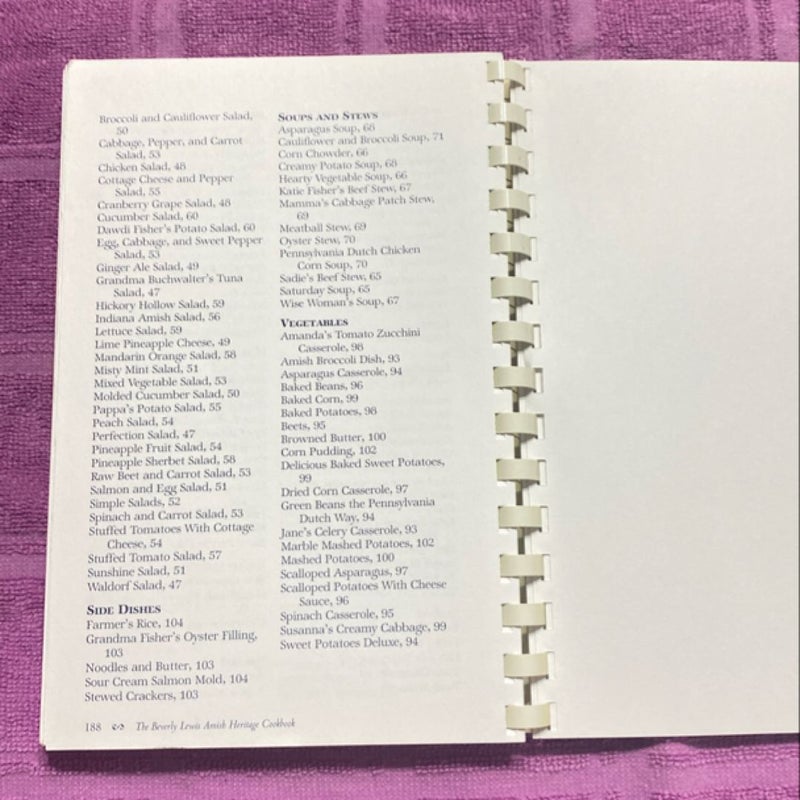 Broccoli and Cauliflower Salad,
50
Cabbage, Pepper, and Carrot
Salad, 53
Chicken Salad, 48
Cottage Cheese and Pepper
Salad, 55
Cranberry Grape Salad, 48
Cucumber Salad, 60
Dawdi Fisher's Potato Salad, 60
Egg, Cabbage, and Sweet Pepper
Salad, 53
Ginger Ale Salad, 49
Grandma Buchwalter's Tuna
Salad, 47
Hickory Hollow Salad, 59
Indiana Amish Salad, 56
Lettuce Salad, 59
Lime Pineapple Cheese, 49
Mandarin Orange Salad, 58
Misty Mint Salad, 51
Mixed Vegetable Salad, 53
Molded Cucumber Salad, 50
Pappa's Potato Salad, 55
Peach Salad, 54
Perfection Salad, 47
Pineapple Fruit Salad, 54
Pineapple Sherbet Salad, 58
Raw Beet and Carrot Salad, 53
Salmon and Egg Salad, 51
Simple Salads, 52
Spinach and Carrot Salad, 53
Stuffed Tomatoes With Cottage
Cheese, 54
Stuffed Tomato Salad, 57
Sunshine Salad, 51
Waldorf Salad, 47
SIDE DISHES
Farmer's Rice, 104
Grandma Fisher's Oyster Filling,
103
Noodles and Butter, 103
Sour Cream Salmon Mold, 104
Stewed Crackers, 103
SOUPS AND STEWS
Asparagus Soup, 68
Cauliflower and Broccoli Soup, 71
Corn Chowder, 66
Creamy Potato Soup, 68
Hearty Vegetable Soup, 66
Katie Fisher's Beef Stew, 67
Mamma's Cabbage Patch Stew,
69
Meatball Stew, 69
Oyster Stew, 70
Pennsylvania Dutch Chicken
Corn Soup, 70
Sadie's Beef Stew, 65
Saturday Soup, 65
Wise Woman's Soup, 67
VEGETABLES
Amanda's Tomato Zucchini
Casserole, 98
Amish Broccoli Dish, 93
Asparagus Casserole, 94
Baked Beans, 96
Baked Corn, 99
Baked Potatoes, 98
Beets, 95
Browned Butter, 100
Corn Pudding, 102
Delicious Baked Sweet Potatoes,
99
Dried Corn Casserole, 97
Green Beans the Pennsylvania
Dutch Way, 94
Jane's Celery Casserole, 93
Marble Mashed Potatoes, 102
Mashed Potatoes, 100
Scalloped Asparagus, 97
Scalloped Potatoes With Cheese
Sauce, 96
Spinach Casserole, 95
Susanna's Creamy Cabbage, 99
Sweet Potatoes Deluxe, 94
188 The Beverly Lewis Amish Heritage Cookbook